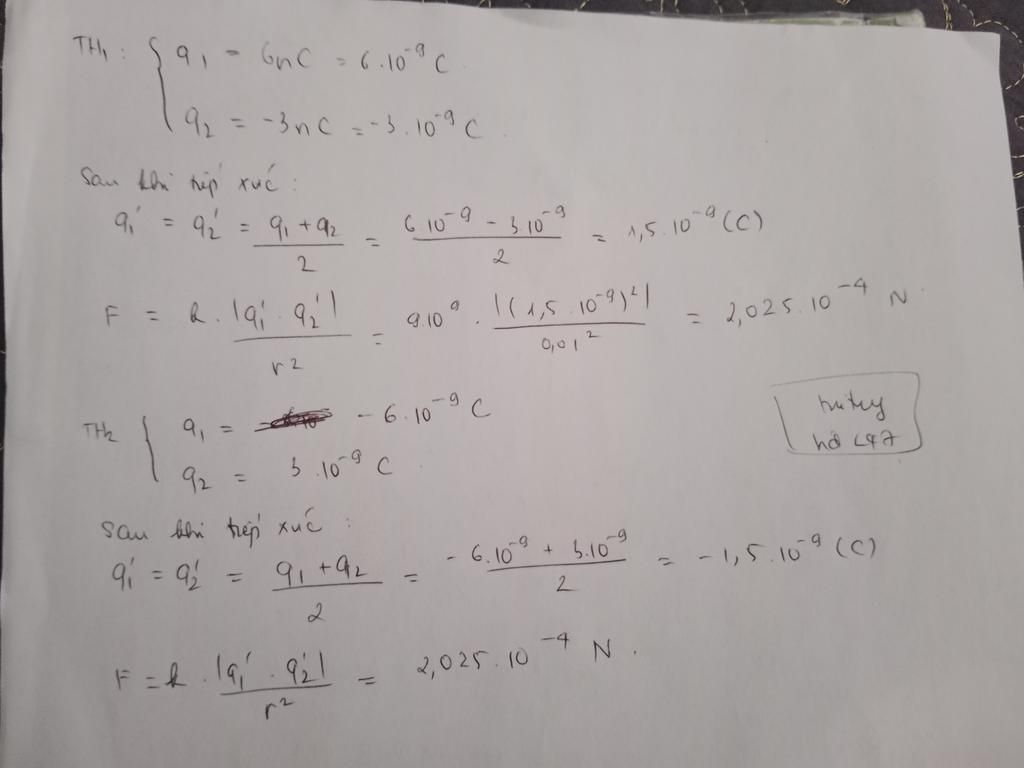 TH₁ : { q₁ = 6nC = 6.10⁻⁹ C
q₂ = -3nC = -3.10⁻⁹ C
Sau khi tiếp xúc :
q₁' = q₂' = (q₁ + q₂)/2 = (6.10⁻⁹ - 3.10⁻⁹)/2 = 1,5.10⁻⁹ (C)
F = k . |q₁' . q₂'|/r² = 9.10⁹ . |(1,5.10⁻⁹)²|/0,01² = 2,025.10⁻⁴ N
TH₂ { q₁ = -6.10⁻⁹ C
q₂ = 3.10⁻⁹ C
Sau khi tiếp xúc :
q₁' = q₂' = (q₁ + q₂)/2 = (-6.10⁻⁹ + 3.10⁻⁹)/2 = -1,5.10⁻⁹ (C)
F = k . |q₁' . q₂'|/r² = 2,025.10⁻⁴ N .